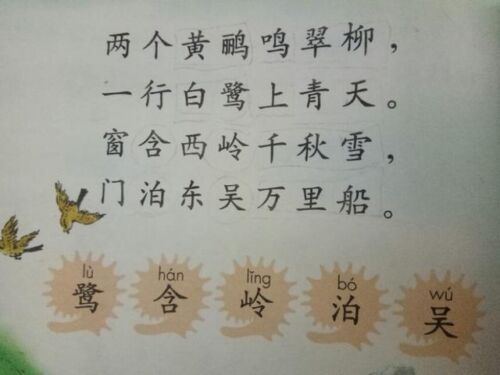 两个黄鹂鸣翠柳，
一行白鹭上青天。
窗含西岭千秋雪，
门泊东吴万里船。
lù hán lǐng bó wú
鹭 含 岭 泊 吴